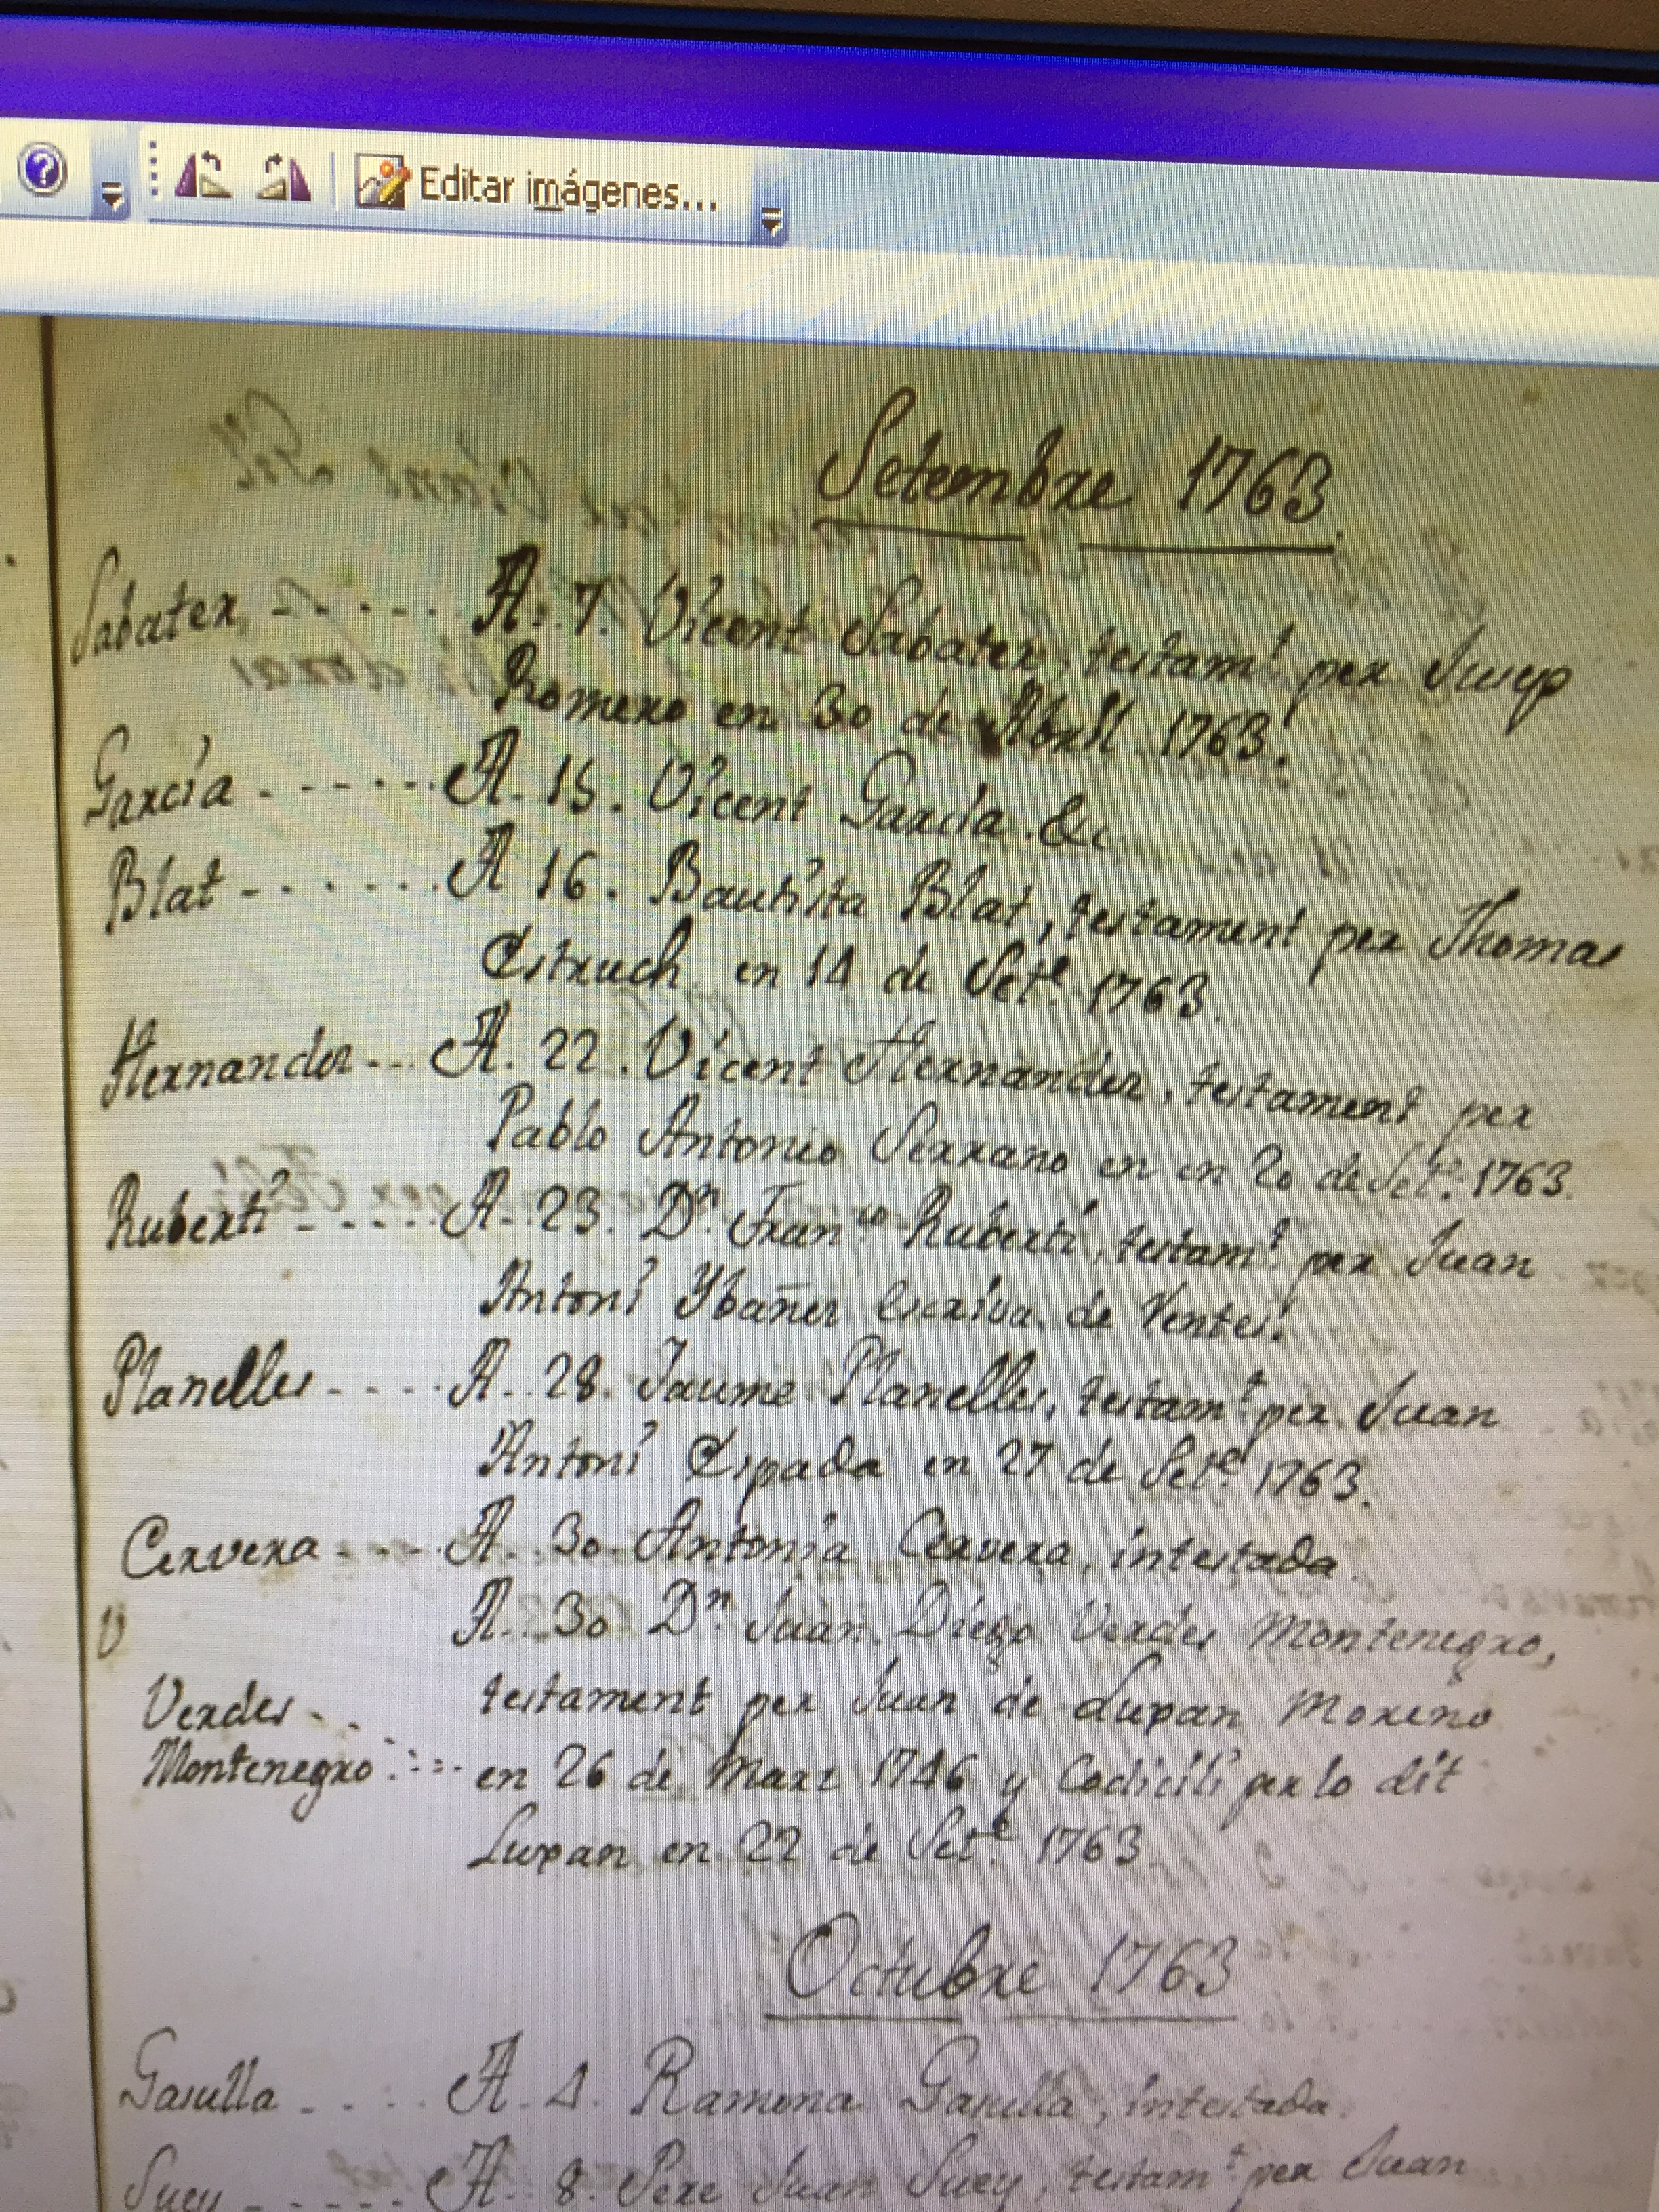 Editar imágenes...
Setembre 1763.
Sabater, - - - - - A. 7. Vicent Sabater, testam.t per Jusep
Romero en 30 de Abril 1763.
García - - - - - A. 15. Vicent García &c
Blat - - - - - - A 16. Bautista Blat, testament per Thomas
Estruch en 14 de Set.e 1763.
Hernandez - - - A. 22. Vicent Hernandez, testament per
Pablo Antonio Serrano en en 20 de Set.e 1763.
Ruberti - - - - - A. 23. D.n Fran.co Ruberti, testam.t per Juan
Antoni Ybañez Escrivá de Ventes.
Planelles - - - - A. 28. Jaume Planelles, testam.t per Juan
Antoni Espada en 27 de Set.e 1763.
Cervera - - - - A. 30. Antonia Cervera, intestada.
V A. 30 D.n Juan Diego Verdes Montenegro,
Verdes - - testament per Juan de Lupan Moreno
Montenegro - - - en 26 de Marz 1746 y Codicili per lo dit
Lupan en 22 de Set.e 1763
Octubre 1763
Gasulla - - - - A. 4. Ramona Gasulla, intestada.
Suey - - - - - A. 8. Pere Juan Suey, testam.t per Juan